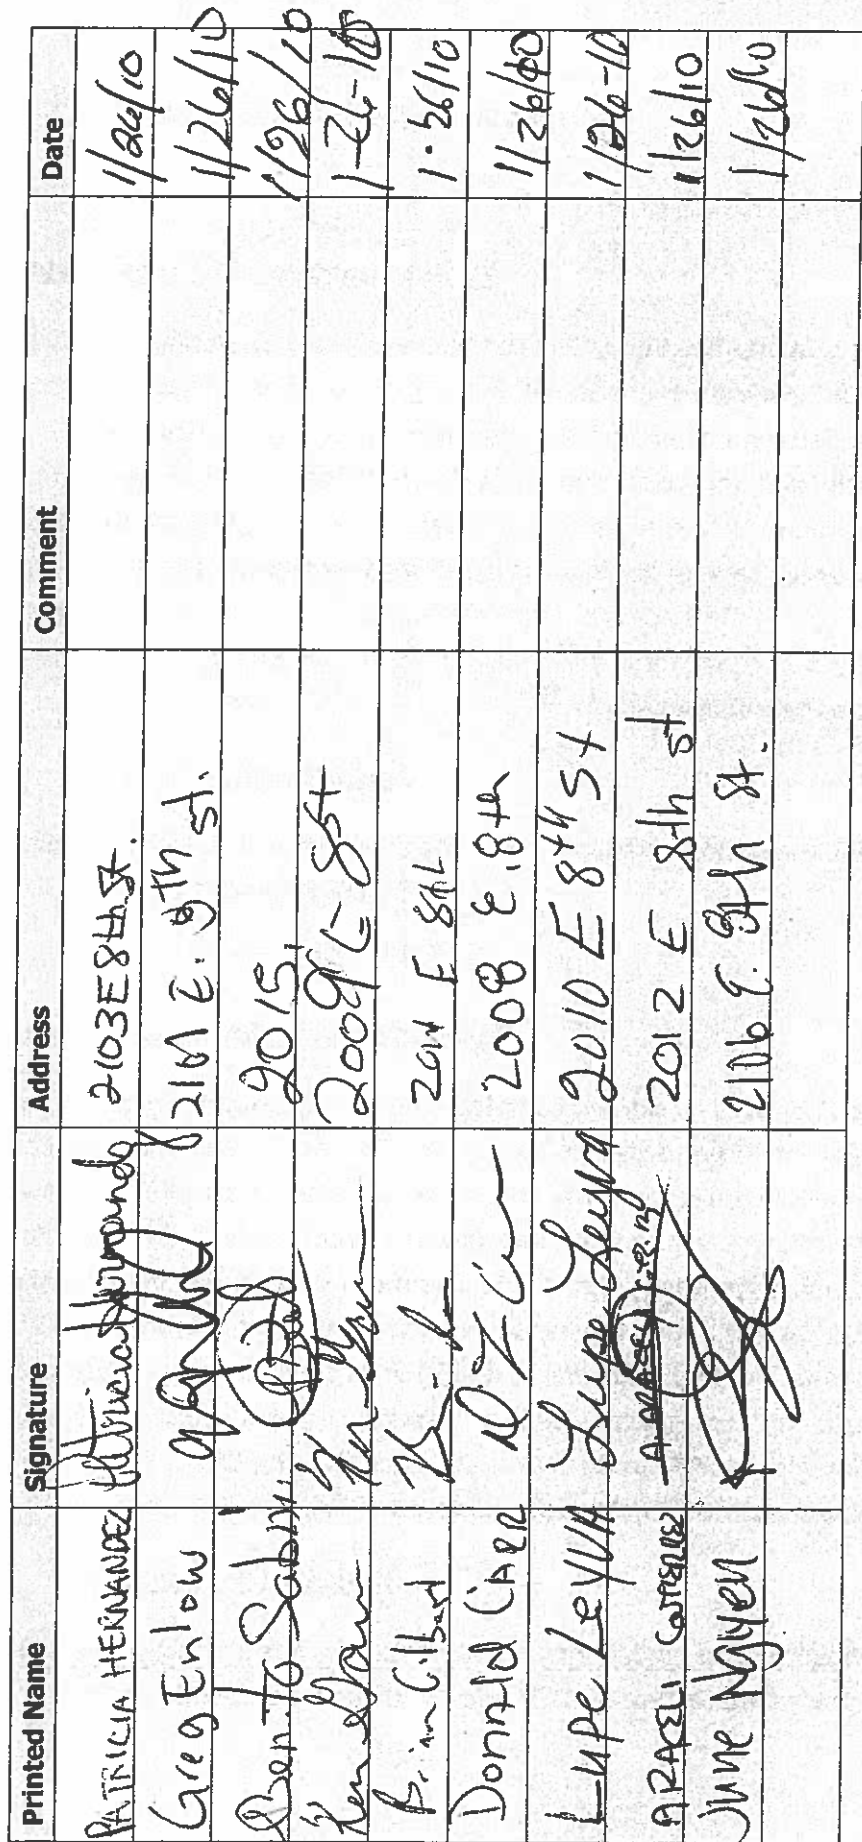 Printed Name Signature Address Comment Date
PATRICIA HERNANDEZ Patricia Hernandez 2103 E 8th St. 1/26/10
Greg Enlow E. 8th St. 1/26/10
Benito 2015 1/26/10
Ken 2009 E 8 St 1-26-10
Brian Gilbert E 8th 1.26/10
Donald CARR 2008 E. 8th 1/26/10
Lupe LeyVA Lupe Leyva 2010 E 8th St 1/26-10
ARACELI 2012 E 8th St 1/26/10
June Nguyen 2106 E. 8th St. 1/26/10